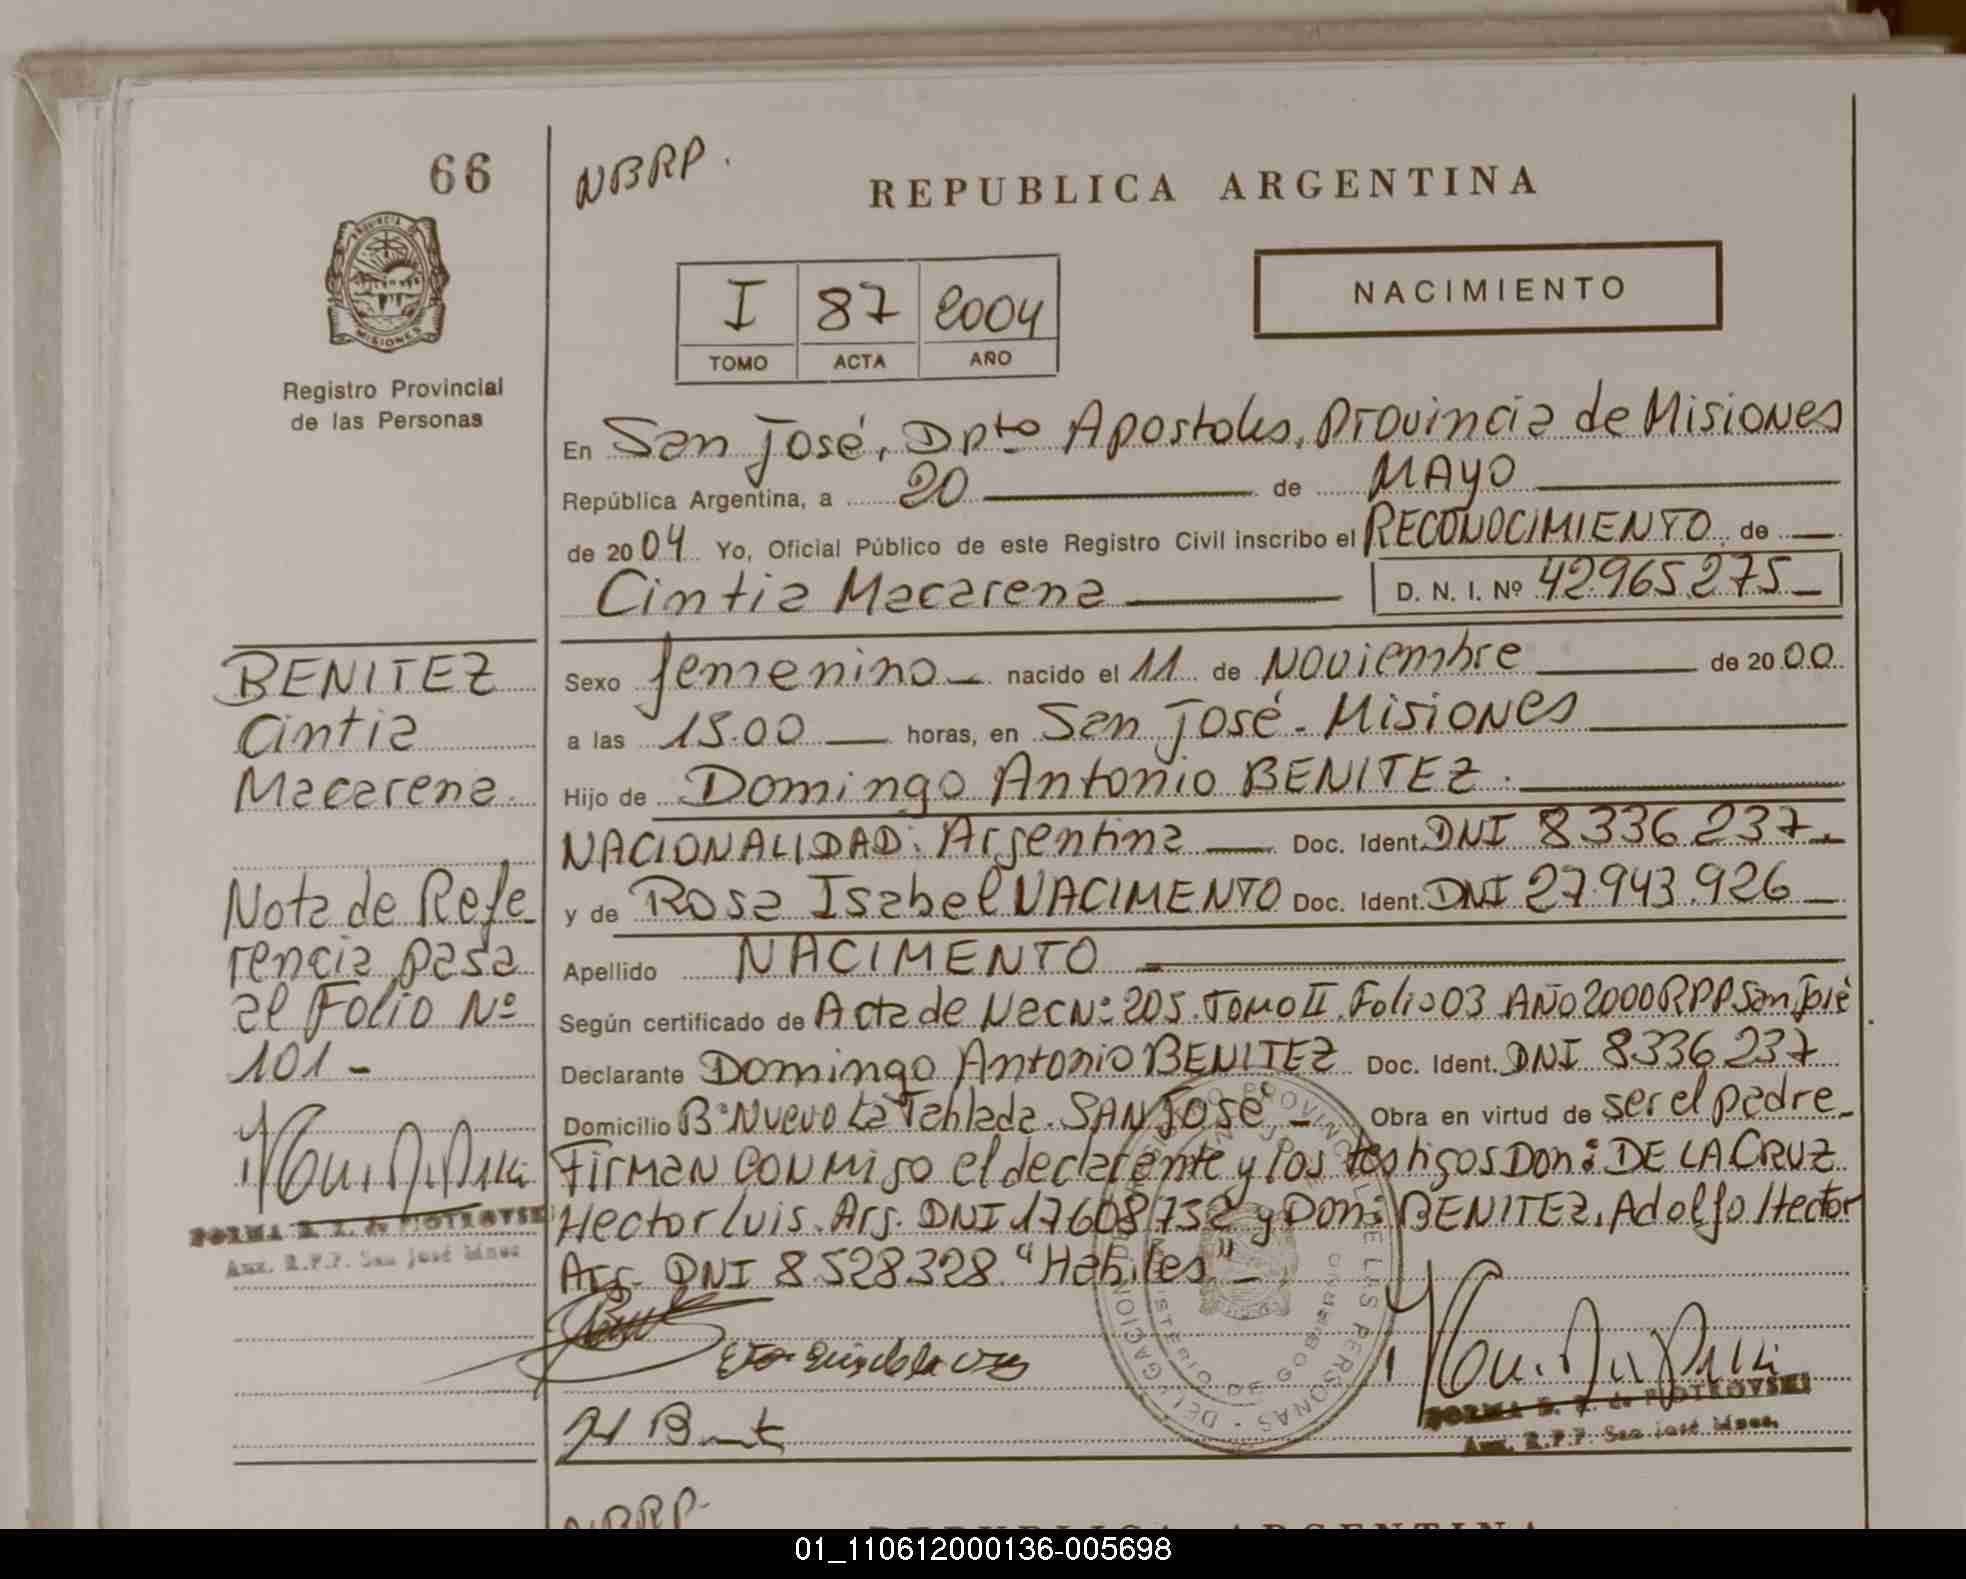 66
NBRP.
REPUBLICA ARGENTINA
I 87 2004
TOMO ACTA AÑO
NACIMIENTO
PROVINCIA DE MISIONES
Registro Provincial
de las Personas
En San José, Dpto Apostoles, Provincia de Misiones
República Argentina, a 20 de MAYO
de 2004 Yo, Oficial Público de este Registro Civil inscribo el RECONOCIMIENTO de
Cintia Macarena D. N. I. Nº 42965275
BENITEZ
Cintia
Macarena
Nota de Refe-
rencia pasa
al Folio Nº
101-
R. Z. de PIOTROVSKI
Aux. R.P.P. San José Mnes
Sexo femenino nacido el 11 de Noviembre de 2000
a las 15.00 horas, en San José - Misiones
Hijo de Domingo Antonio BENITEZ.
NACIONALIDAD: Argentina Doc. Ident. DNI 8336237
y de Rosa Isabel NACIMENTO Doc. Ident. DNI 27.943.926
Apellido NACIMENTO
Según certificado de Acta de Nac Nº 205. Tomo II. Folio 03 AÑO 2000 RPP San José
Declarante Domingo Antonio BENITEZ Doc. Ident. DNI 8336237
Domicilio Bº Nuevo La Tablada. SAN JOSE - Obra en virtud de ser el padre
Firman conmigo el declarente y los testigos Don: DE LA CRUZ
Hector Luis. Arg. DNI 17608752 y Don: BENITEZ, Adolfo Hector
Arg. DNI 8528328 "Habiles"
R. Z. de PIOTROVSKI
Aux. R.P.P. San José Mnes.
NBRP.
REPUBLICA ARGENTINA
01_110612000136-005698